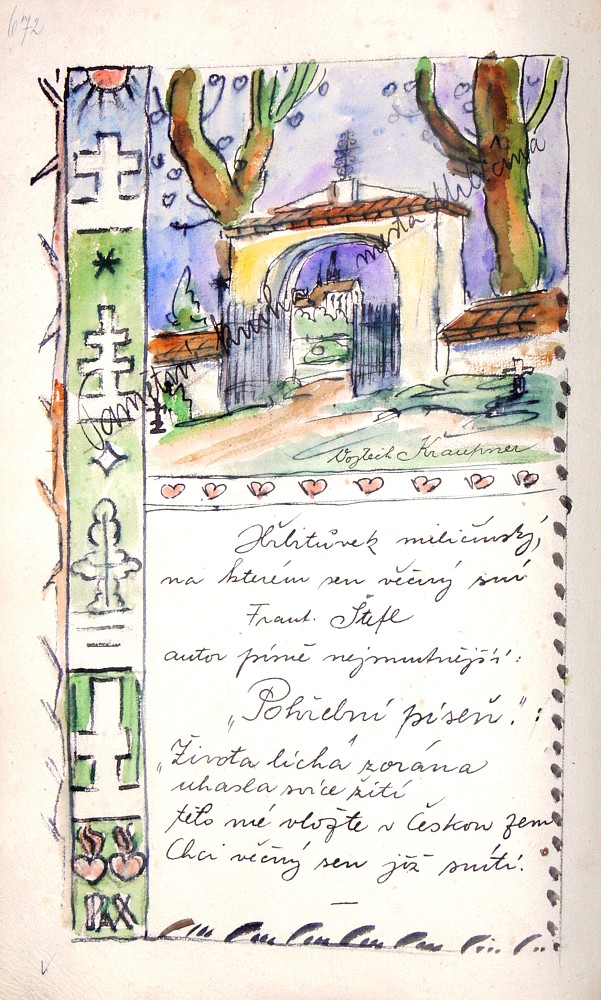 672
Pamětní kniha města Miličína
Vojtěch Kraupner
Hřbitůvek miličínský,
na kterém sen věčný sní
Frant. Štefl
autor písně nejsmutnější:
„Pohřební píseň.":
„Života líchá zorána
uhasla svíce žití
tělo mé vložte v Českou zem
Chci věčný sen již sníti.
PAX